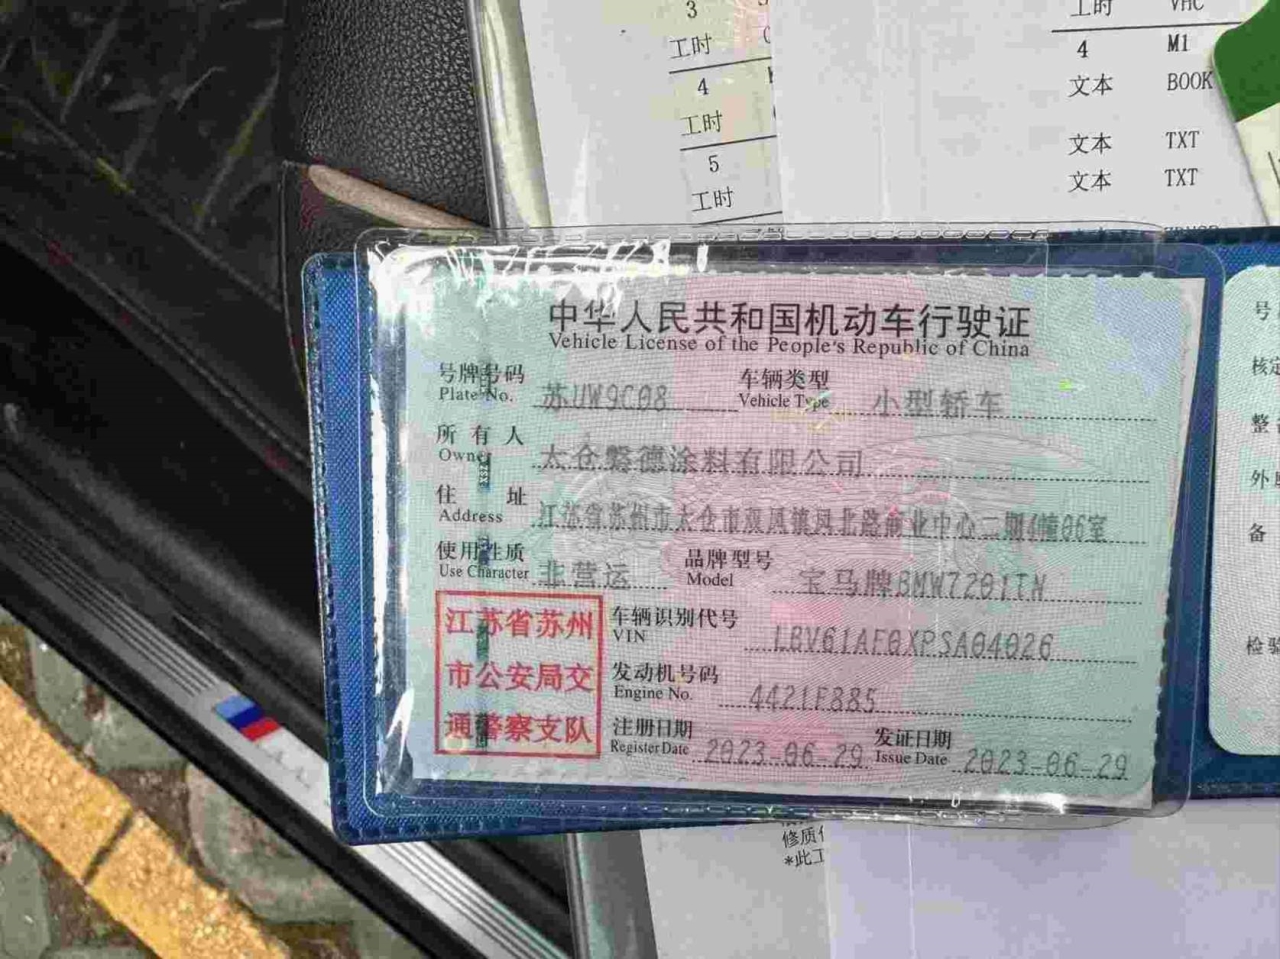 3
工时
4
工时
5
工时
工时 VHC
4 M1
文本 BOOK
文本 TXT
文本 TXT
中华人民共和国机动车行驶证
Vehicle License of the People's Republic of China
号牌号码 苏UW9C08 车辆类型 小型轿车
Plate No. Vehicle Type
所有人 太仓磐德涂料有限公司
Owner
住址 江苏省苏州市太仓市双凤镇凤北路商业中心二期4幢06室
Address
使用性质 非营运 品牌型号 宝马牌BMW7201TN
Use Character Model
江苏省苏州
市公安局交
通警察支队
车辆识别代号 LBV61AF0XPSA04026
VIN
发动机号码 4421F885
Engine No.
注册日期 2023-06-29 发证日期 2023-06-29
Register Date Issue Date
号
核定
整
外
备
检验
修质
*此工